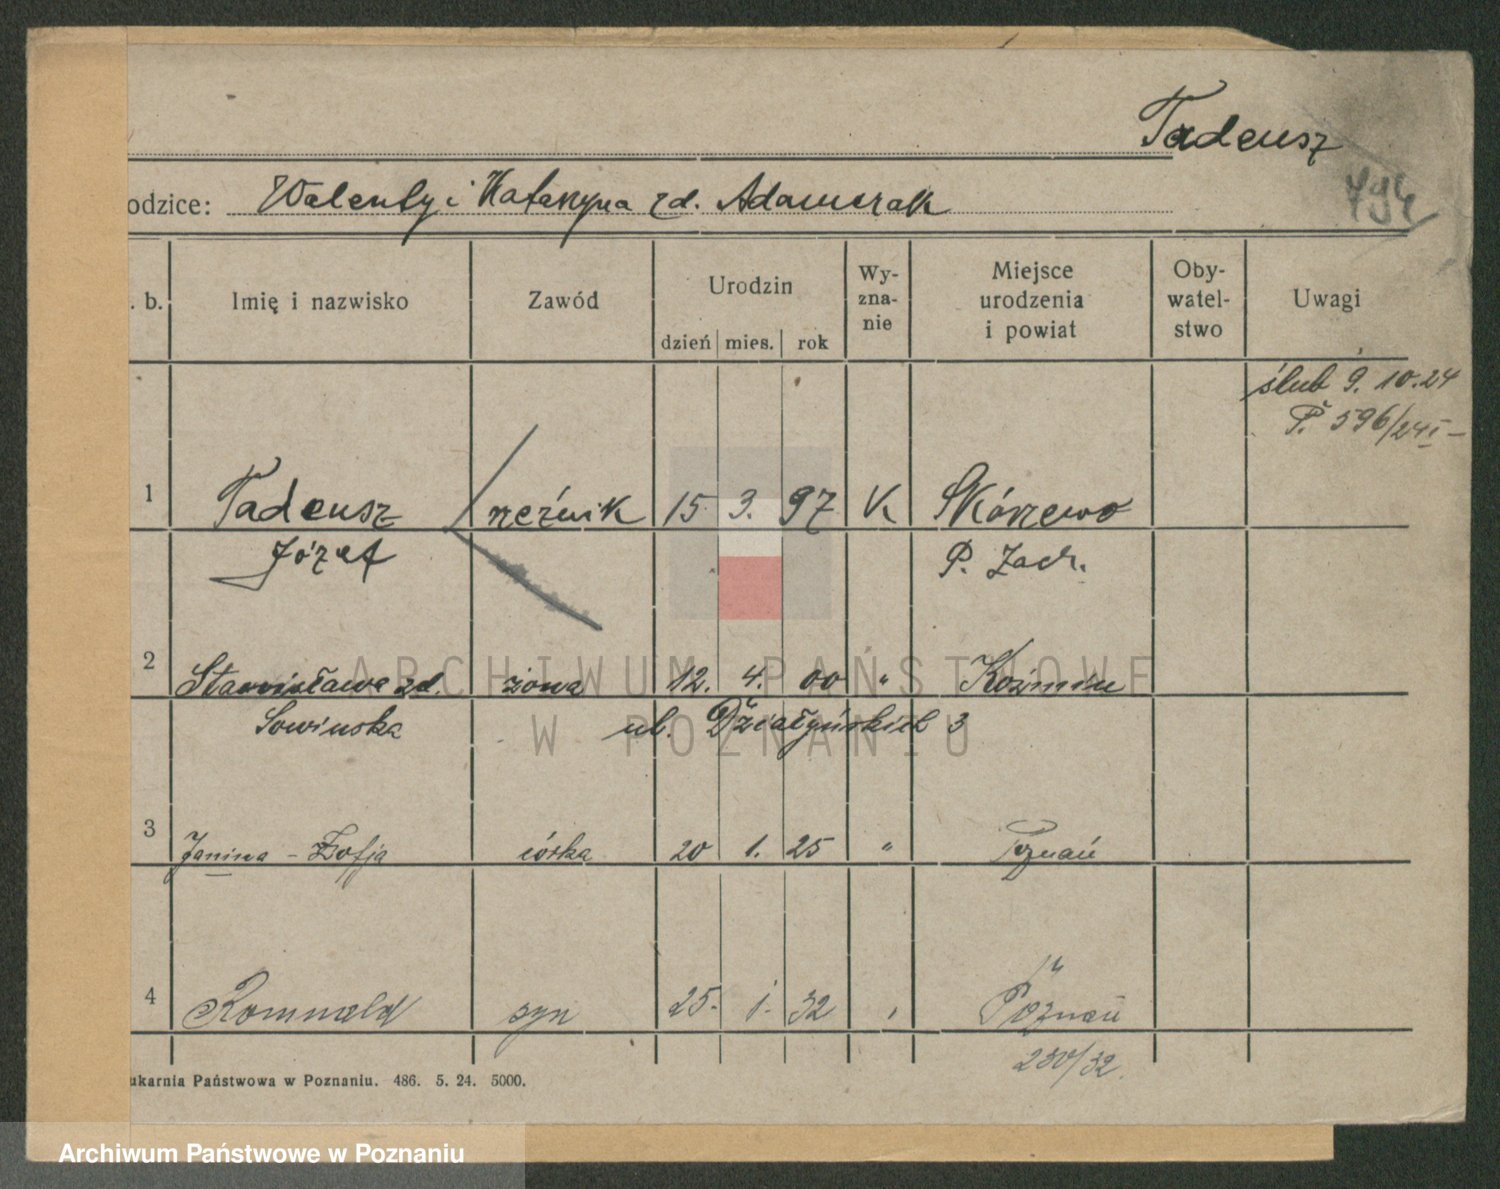 Tadeusz
odzice: Walenty i Katarzyna zd. Adamczak
794
. b. Imię i nazwisko Zawód Urodzin dzień mies. rok Wy-zna-nie Miejsce urodzenia i powiat Oby-watel-stwo Uwagi
ślub 9. 10. 24
P. 596/24
1 Tadeusz rzeźnik 15. 3. 97 K Skórzewo
Józef P. Zach.
2 Stanisława zd. żona 12. 4. 00 " Koźmin
Sowinska ul. Działyńskich 3
3 Janina - Zofja córka 20 1. 25 " Poznań
4 Romuald syn 25. 1. 32 Poznań
250/32.
ukarnia Państwowa w Poznaniu. 486. 5. 24. 5000.
ARCHIWUM PAŃSTWOWE
W POZNANIU
Archiwum Państwowe w Poznaniu